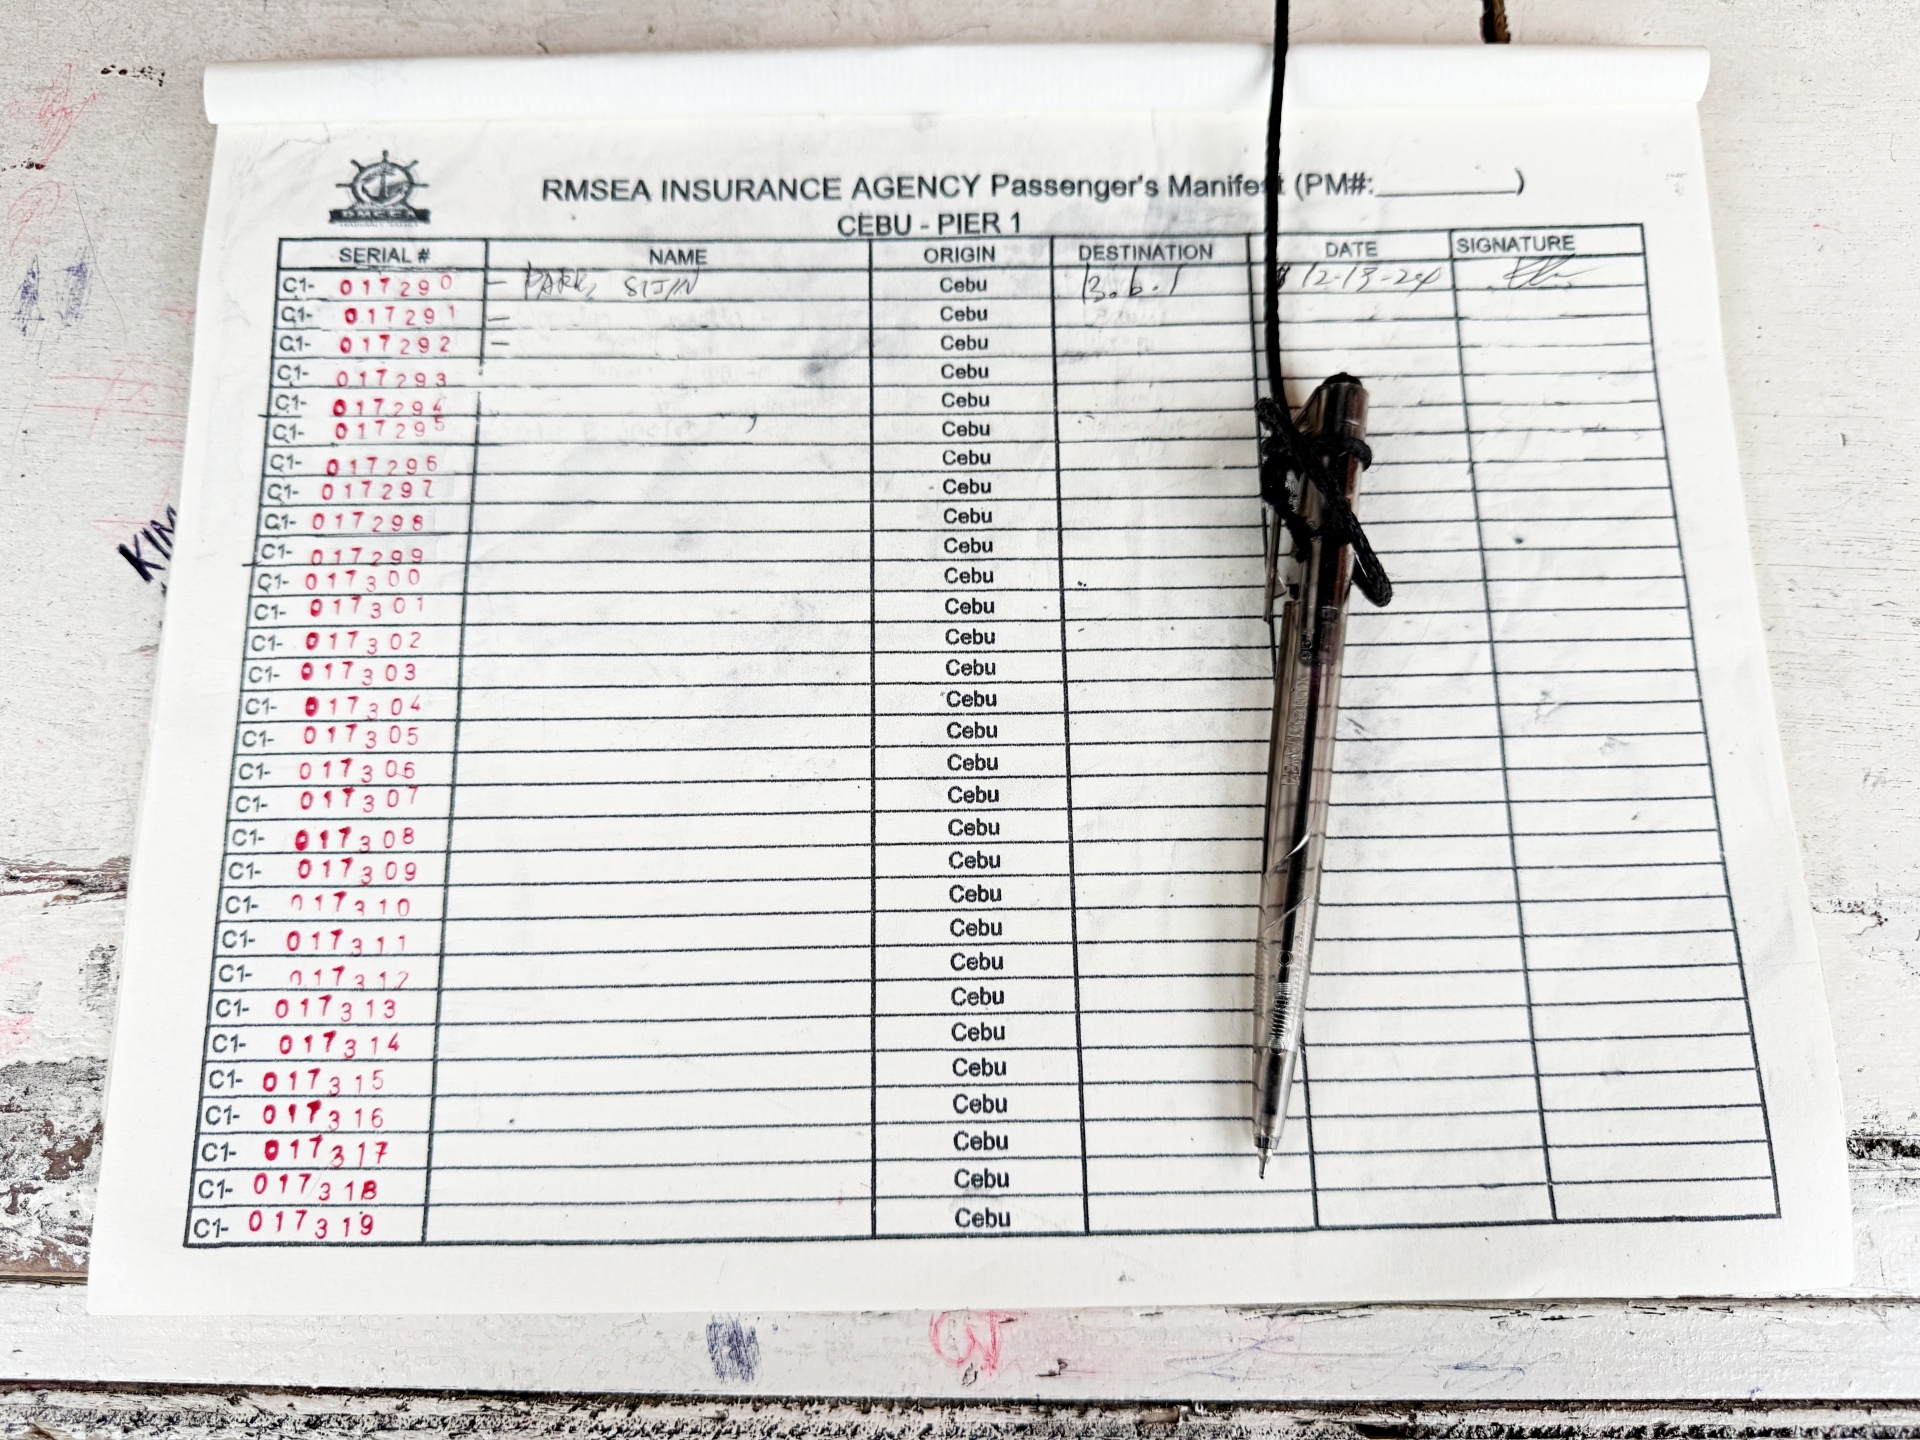 RMSEA
RMSEA INSURANCE AGENCY Passenger's Manifest (PM#:__________)
CEBU - PIER 1
SERIAL # NAME ORIGIN DESTINATION DATE SIGNATURE
C1- 017290 - PARK, SIJIN Cebu 12-13-24
C1- 017291 - Cebu
C1- 017292 - Cebu
C1- 017293 Cebu
C1- 017294 Cebu
C1- 017295 Cebu
C1- 017296 Cebu
C1- 017297 Cebu
C1- 017298 Cebu
C1- 017299 Cebu
C1- 017300 Cebu
C1- 017301 Cebu
C1- 017302 Cebu
C1- 017303 Cebu
C1- 017304 Cebu
C1- 017305 Cebu
C1- 017306 Cebu
C1- 017307 Cebu
C1- 017308 Cebu
C1- 017309 Cebu
C1- 017310 Cebu
C1- 017311 Cebu
C1- 017312 Cebu
C1- 017313 Cebu
C1- 017314 Cebu
C1- 017315 Cebu
C1- 017316 Cebu
C1- 017317 Cebu
C1- 017318 Cebu
C1- 017319 Cebu